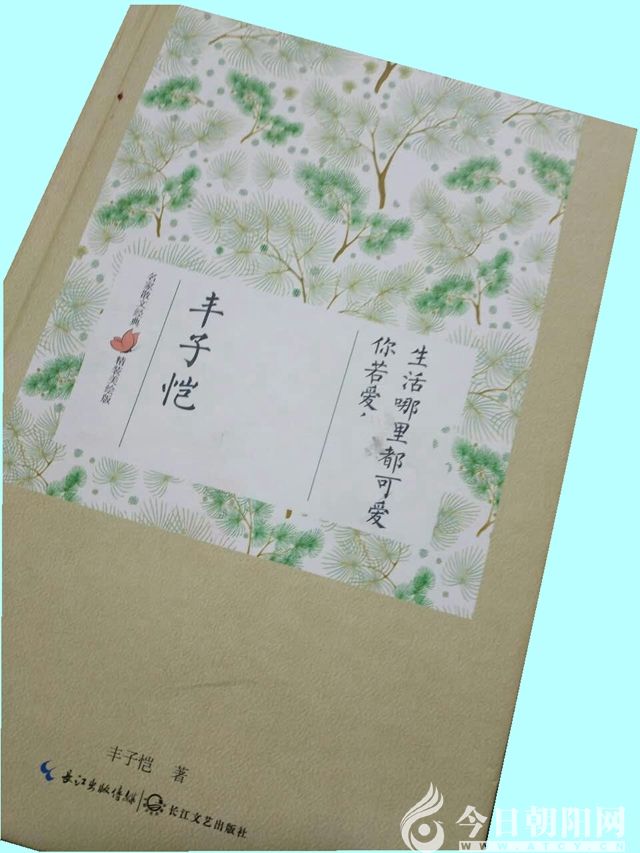 名家散文经典
精装美绘版
丰子恺
你若爱，
生活哪里都可爱
丰子恺 著
长江出版传媒
长江文艺出版社
今日朝阳网
WWW.ATCY.CN